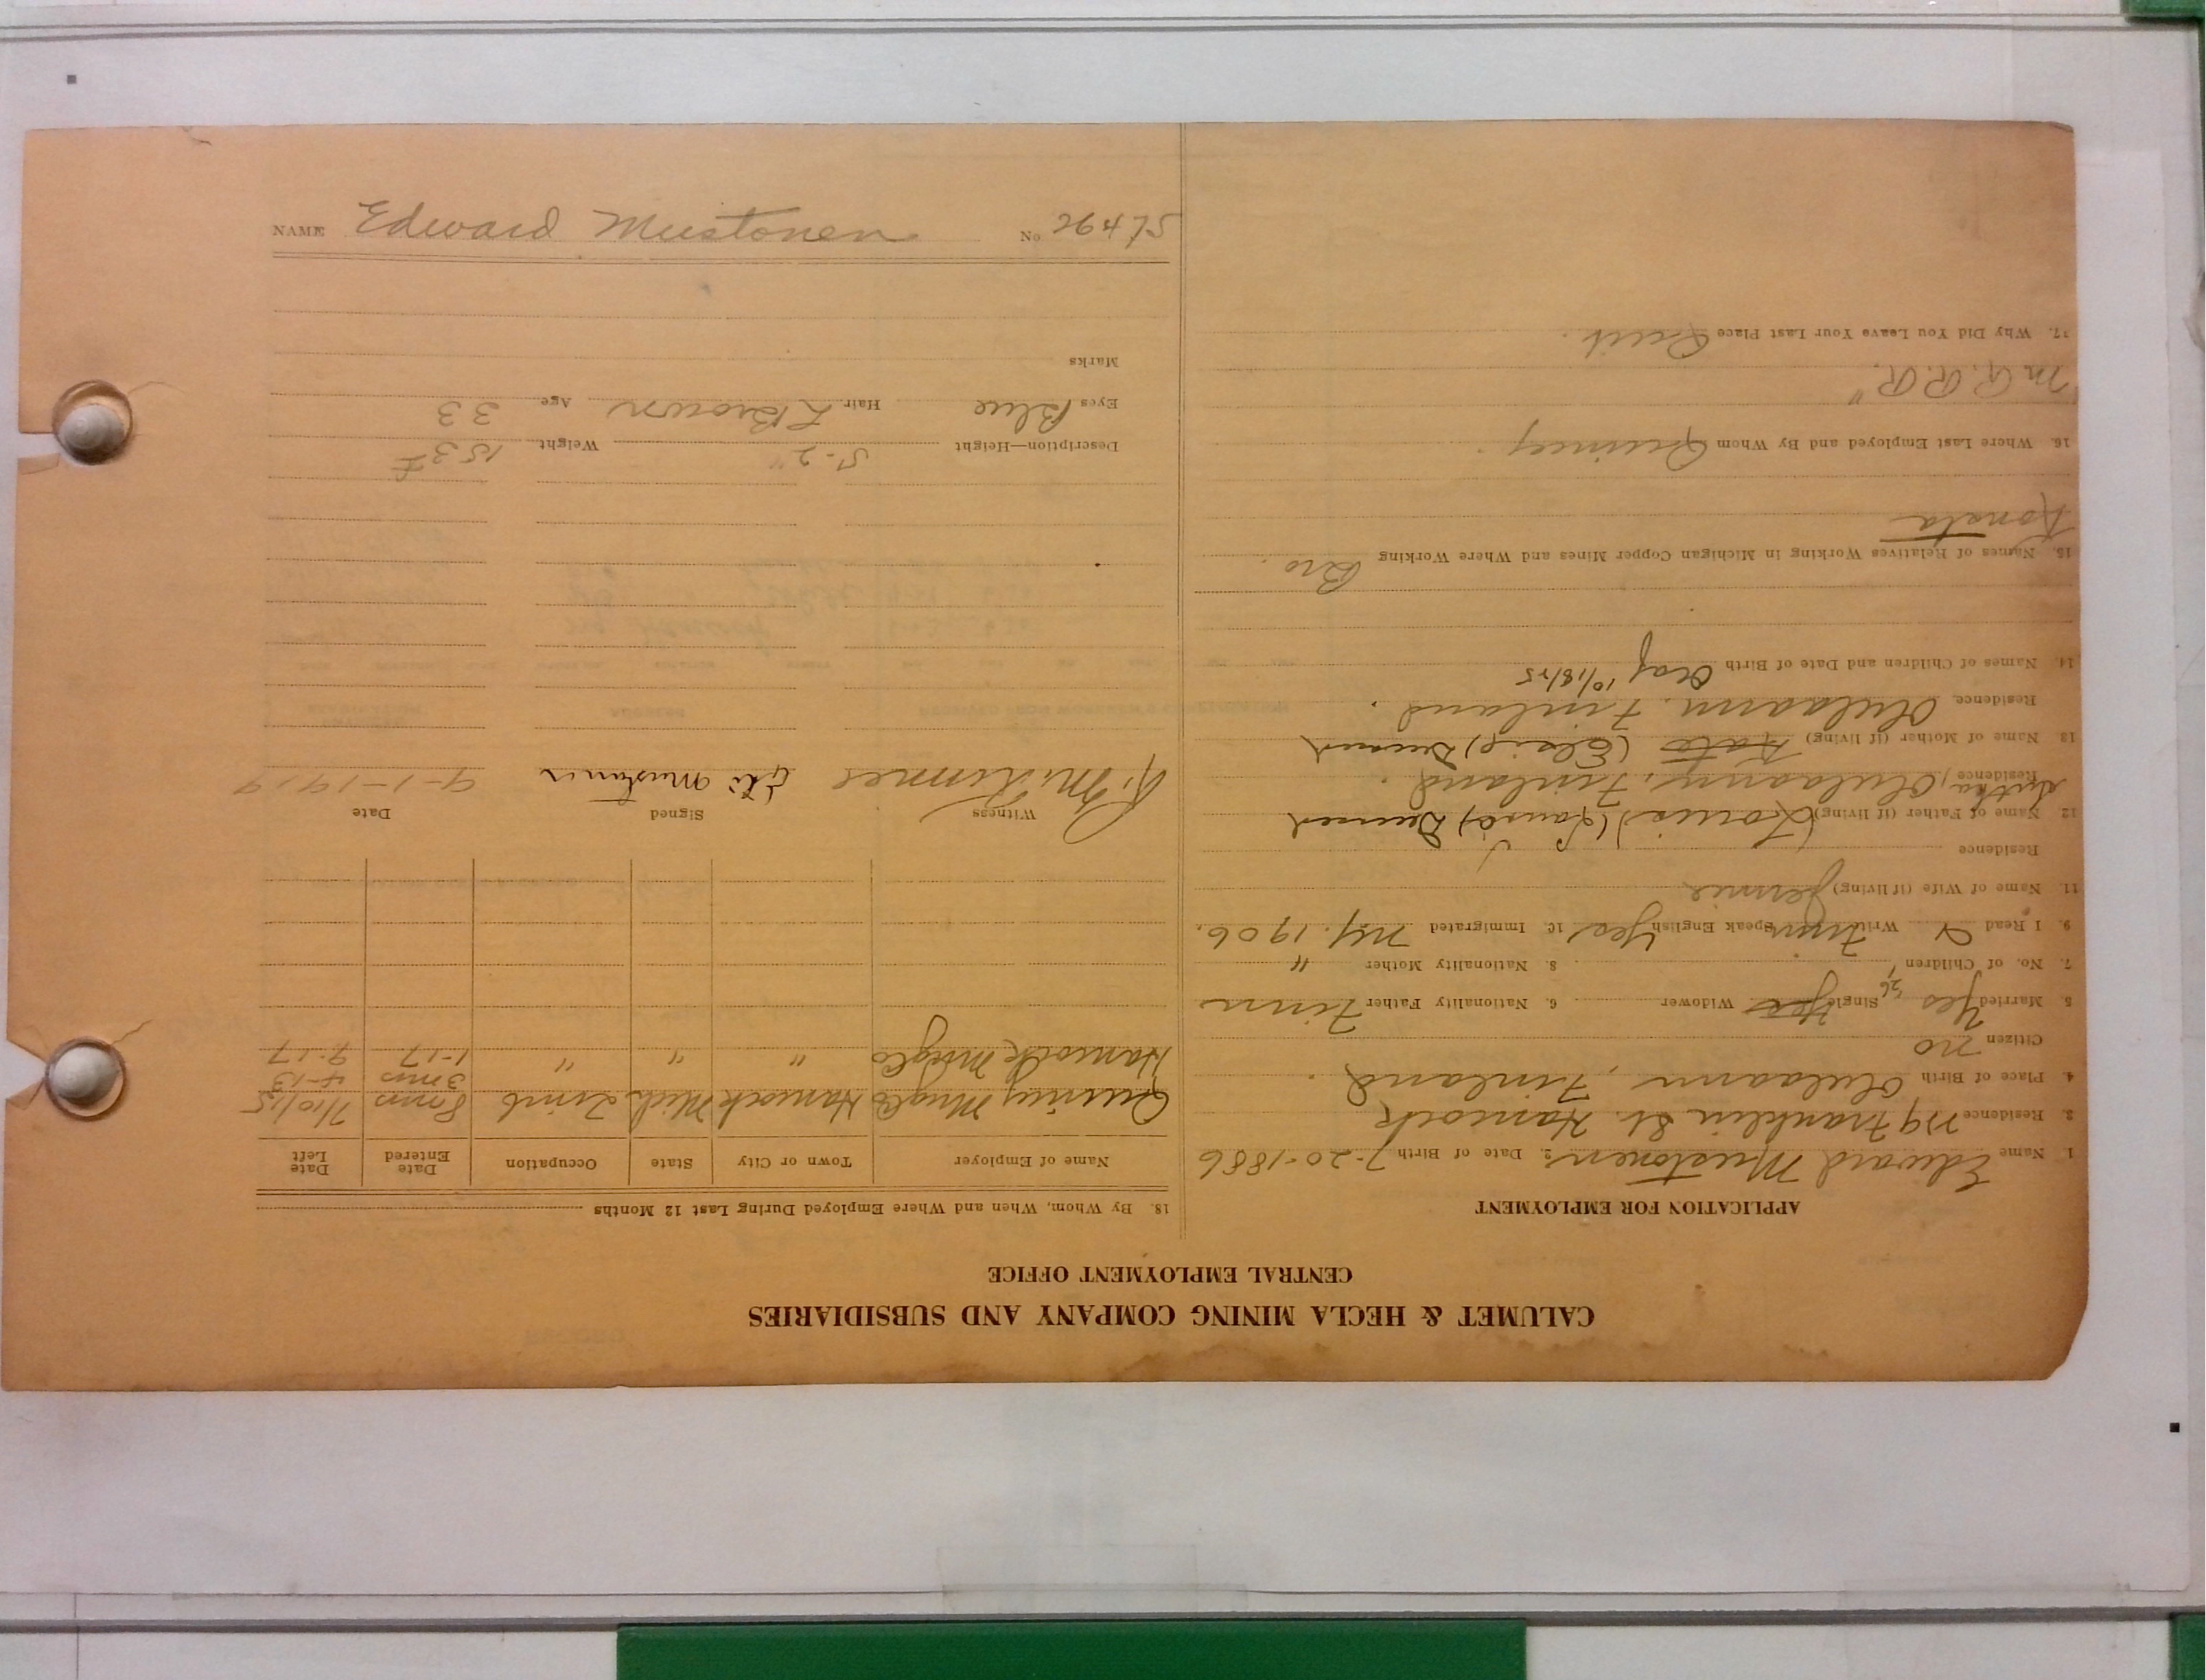 CALUMET & HECLA MINING COMPANY AND SUBSIDIARIES
CENTRAL EMPLOYMENT OFFICE
APPLICATION FOR EMPLOYMENT
1. Name Edward Mustonen 2. Date of Birth 7-20-1886
3. Residence Franklin St. Hancock
4. Place of Birth Oulaann, Finland.
Citizen no
5. Married Yes '26 Single Yes Widower 6. Nationality Father Finn
7. No. of Children 1 8. Nationality Mother "
9. I Read & Write Finn Speak English Yes 10. Immigrated N.Y. 1906.
11. Name of Wife (if living) Jennie
Residence
12. Name of Father (if living) (Louis) (Lauri) Deceased
Residence Oulaann, Finland.
13. Name of Mother (if living) Kate (Elsie) Deceased
Residence Oulaann. Finland.
14. Names of Children and Date of Birth Olaf 10/18/25
15. Names of Relatives Working in Michigan Copper Mines and Where Working Bro.
16. Where Last Employed and By Whom Quincy.
M.R.R.R.
17. Why Did You Leave Your Last Place Quit.
18. By Whom, When and Where Employed During Last 12 Months
Name of Employer Town or City State Occupation Date Entered Date Left
Quincy Mng Co Hancock Mich Timb 8 mos 7/10/15
3 mos 4-13
Hancock Mng Co " " " 1-17 9-17
Witness Signed Date
Mustonen 9-1-1919
Description—Height 5-2" Weight 153
Eyes Blue Hair L Brown Age 33
Marks
NAME Edward Mustonen No 26475